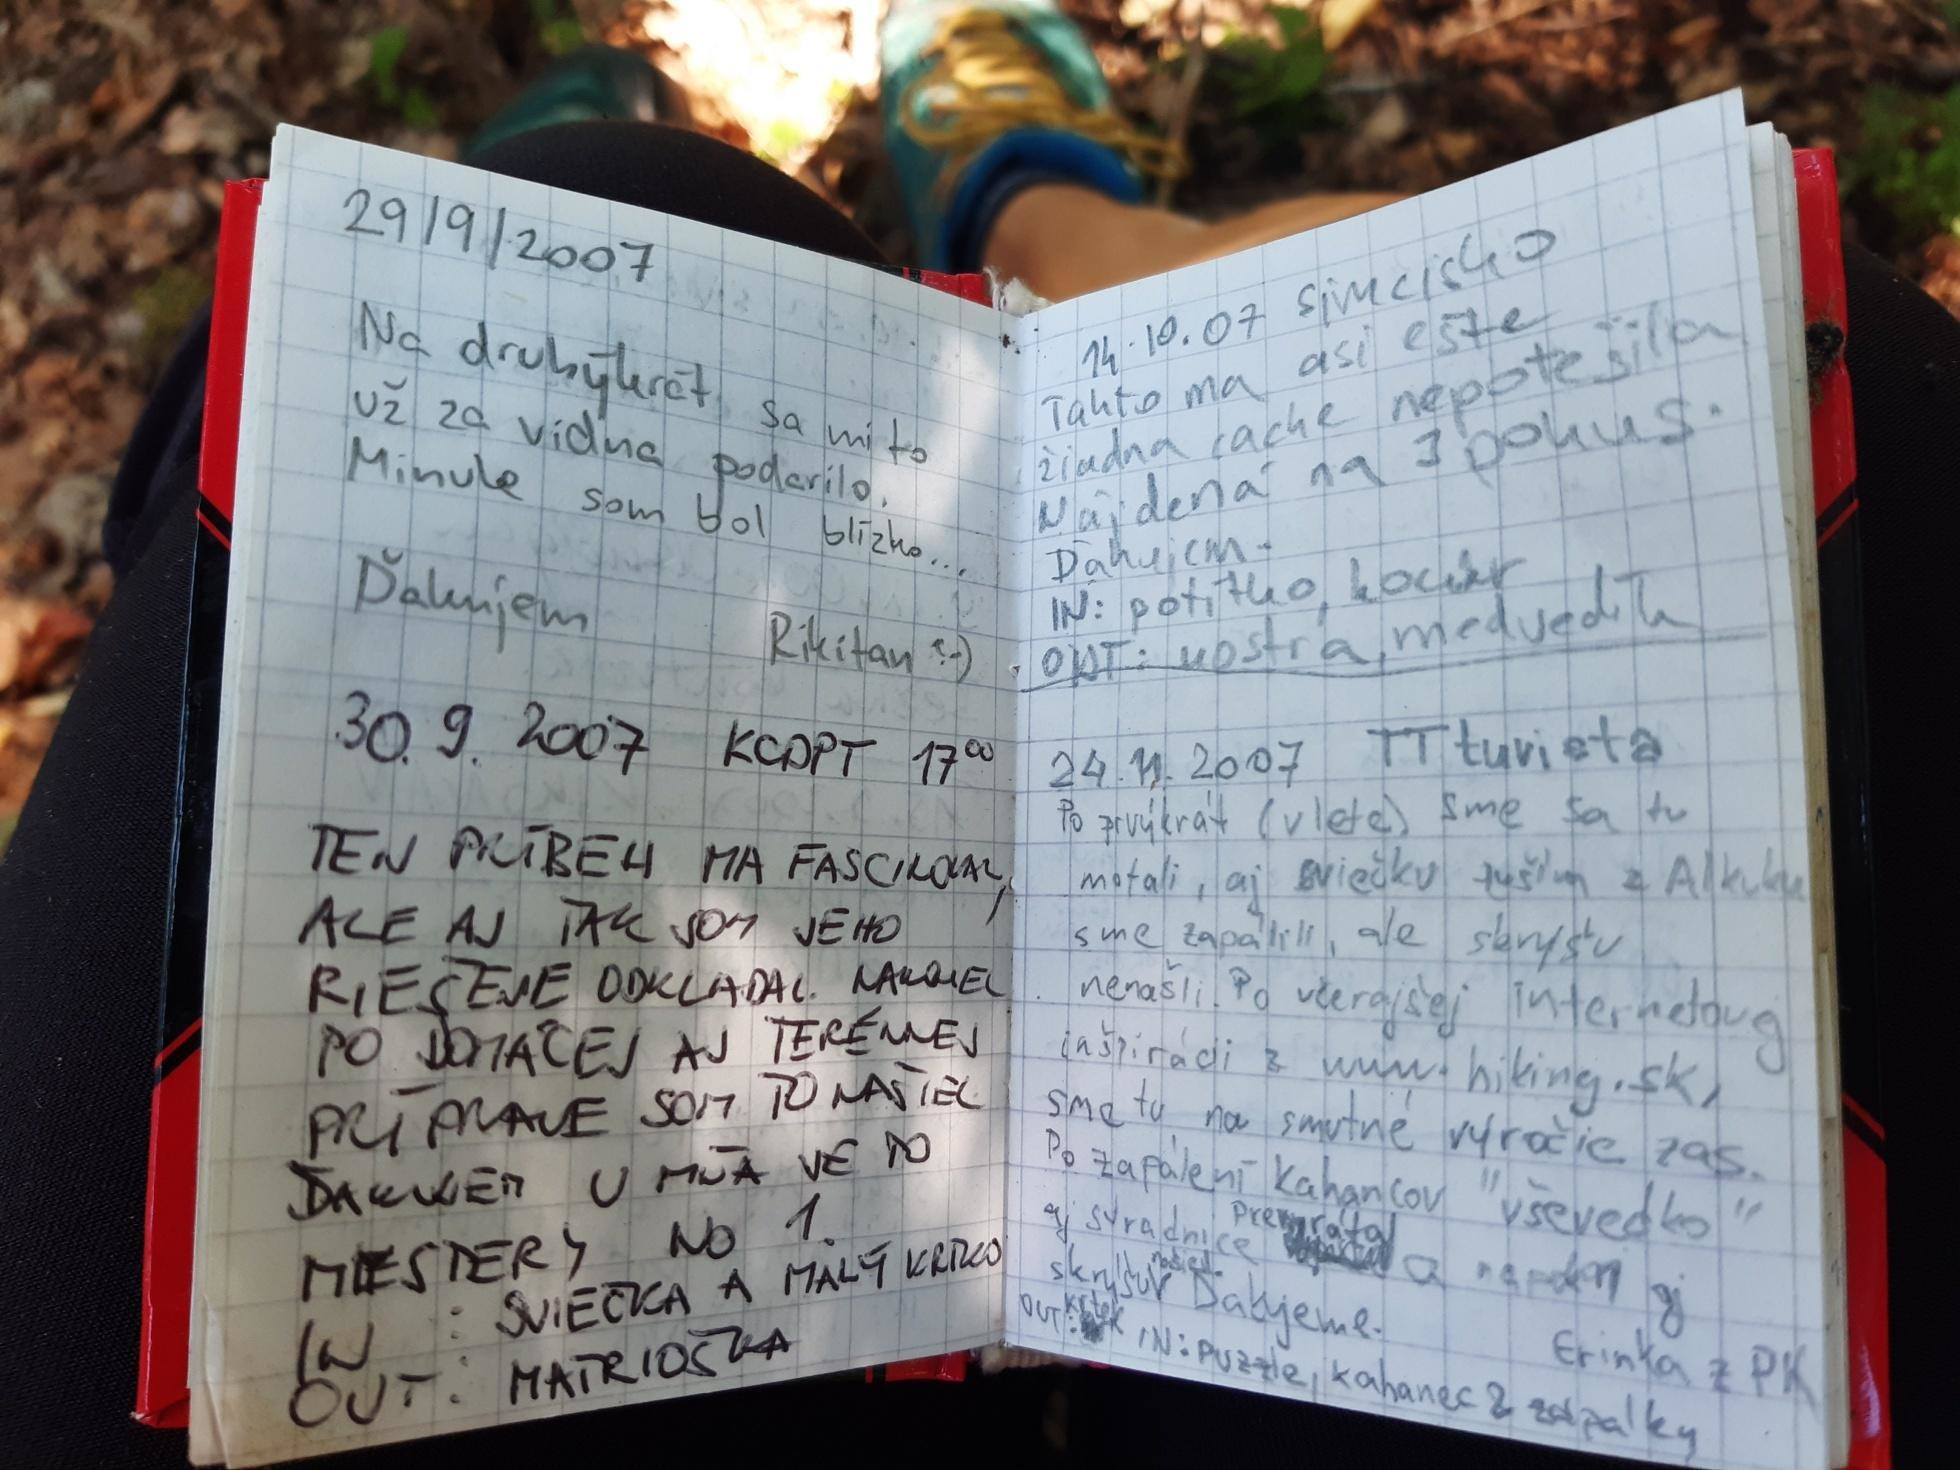 29/9/2007
Na druhýkrát sa mi to
už za vidna podarilo.
Minule som bol blízko...
Ďakujem
Rikitan :-)
30.9. 2007 KCDPT 17⁰⁰
TEN PRÍBEH MA FASCINOVAL,
ALE AJ TAK SOM JEHO
RIEŠENIE ODKLADAL. NAKONIEC
PO DOMÁCEJ AJ TERÉNNEJ
PRÍPRAVE SOM TO NAŠIEL
ĎAKUJEM U MŇA JE TO
MESTERY NO 1.
IN : SVIEČKA A MALÝ KRTKO
OUT: MATRIOŠKA
14.10.07 simcisko
Takto ma asi ešte
žiadna cache nepotešila
Nájdená na 3 pokus.
Ďakujem.
IN: potítko,
OUT: kostra, medvedík
24.11.2007 TTturista
Po prvýkrát (v lete) sme sa tu
motali, aj sviečku tuším z Alkuku
sme zapálili, ale skrýšu
nenašli. Po včerajšej internetovej
inšpirácii z www.hiking.sk,
sme tu na smutné výročie zas.
Po zapálení kahancov "vševedko"
aj súradnice prerátal a napokon aj
skrýšu našiel. Ďakujeme.
Erinka z PK
OUT: krtek IN: puzzle, kahanec & zápalky